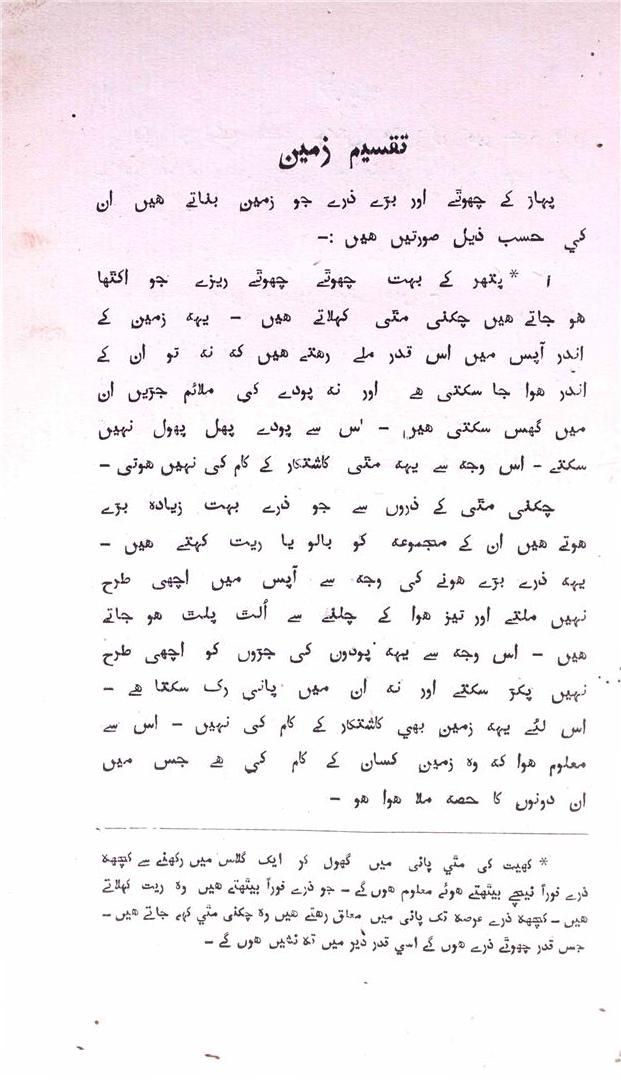 تقسیم زمین
پہاڑ کے چھوٹے اور بڑے ذرے جو زمین بناتے ھیں ان
کی حسب ذیل صورتیں ھیں :—
۱ * پتھر کے بہت چھوٹے چھوٹے ریزے جو اکٹھا
ھو جاتے ھیں چکنی مٹی کہلاتے ھیں — یہہ زمین کے
اندر آپس میں اس قدر ملے رھتے ھیں کہ نہ تو ان کے
اندر ھوا جا سکتی ھے اور نہ پودے کی ملائم جڑیں ان
میں گھس سکتی ھیں — اس سے پودے پھل پھول نہیں
سکتے — اس وجہ سے یہہ مٹی کاشتکار کے کام کی نہیں ھوتی —
چکنی مٹی کے ذروں سے جو ذرے بہت زیادہ بڑے
ھوتے ھیں ان کے مجموعہ کو بالو یا ریت کہتے ھیں —
یہہ ذرے بڑے ھونے کی وجہ سے آپس میں اچھی طرح
نہیں ملتے اور تیز ھوا کے چلنے سے اُلٹ پلٹ ھو جاتے
ھیں — اس وجہ سے یہہ پودوں کی جڑوں کو اچھی طرح
نہیں پکڑ سکتے اور نہ ان میں پانی رک سکتا ھے —
اس لئے یہہ زمین بھی کاشتکار کے کام کی نہیں — اس سے
معلوم ھوا کہ وہ زمین کسان کے کام کی ھے جس میں
ان دونوں کا حصہ ملا ھوا ھو —
* کھیت کی مٹی پانی میں گھول کر ایک گلاس میں رکھنے سے کچھہ
ذرے فوراً نیچے بیٹھتے ھوئے معلوم ھوں گے — جو ذرے فوراً بیٹھتے ھیں وہ ریت کہلاتے
ھیں — کچھہ ذرے عرصہ تک پانی میں معلق رھتے ھیں وہ چکنی مٹی کہے جاتے ھیں —
جس قدر چھوٹے ذرے ھوں گے اسی قدر دیر میں تہ نشیں ھوں گے —